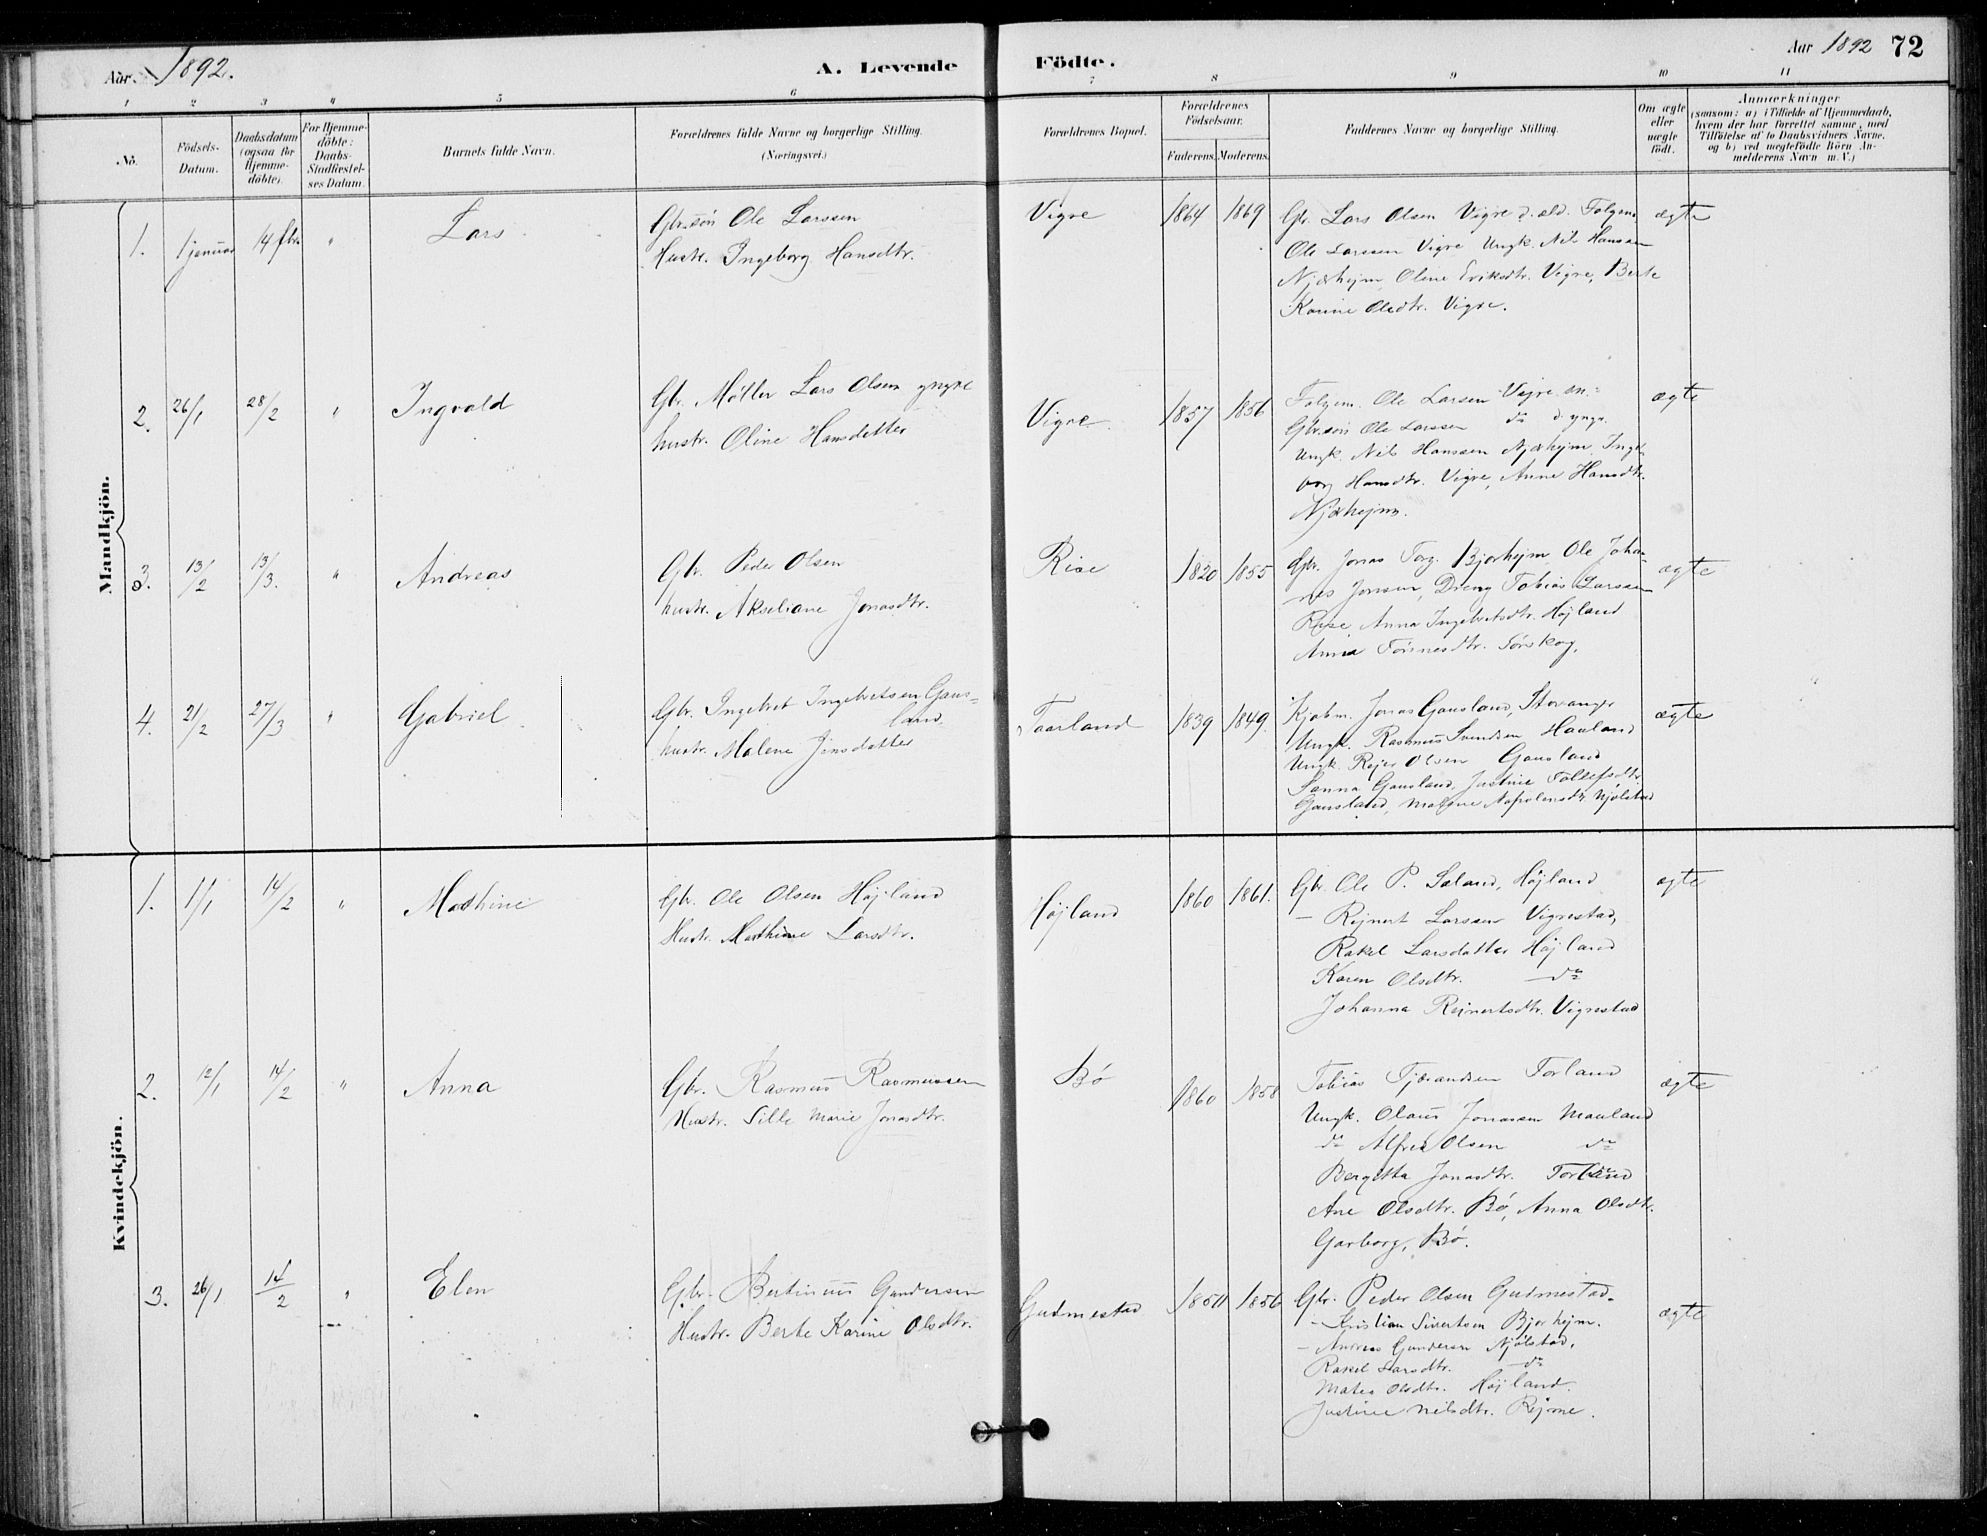 Aar 1892.
A. Levende
Födte.
Aar 1892
72
1 2 3 4 5 6 7 8 9 10 11
No.
Födsels-
Datum.
Daabsdatum
(ogsaa for
Hjemme-
döbte).
For Hjemme-
döbte:
Daabs-
Stadfæstel-
ses Datum.
Barnets fulde Navn.
Forældrenes fulde Navne og borgerlige Stilling.
(Næringsvei.)
Forældrenes Bopæl.
Forældrenes
Födselsaar.
Faderens.
Moderens.
Faddernes Navne og borgerlige Stilling.
Om ægte
eller
uægte
födt.
Anmærkninger
(saasom: a) i Tilfælde af Hjemmedaab,
hvem der har forrettet samme, med
Tilföielse af to Daabsvidners Navne.
og b) ved uægtefödte Börn An-
melderens Navn m. V.)
Mandkjön.
1. 1 januar 14 fbr. " Lars
Gbr.søn Ole Larssen
Hustr. Ingeborg Hansdtr.
Vigre 1864 1869
Gbr. Lars Olsen Vigre d. æld. Folgem.
Ole Larssen Vigre Ungk. Nils Hanssen
Njærhejm, Oline Eriksdtr. Vigre, Berte
Karine Olsdtr. Vigre.
ægte
2. 26/1 28/2 " Ingvald
Gbr. Møller Lars Olsen yngre
hustr. Oline Hansdatter
Vigre 1857 1856
Folgem. Ole Larsen Vigre
Gbr.søn Ole Larssen do d. yngr.
Ungk. Nils Hanssen Njærhejm, Inge-
borg Hansdtr. Vigre, Anne Hansdtr.
Njærhejm.
ægte
3. 13/2 13/3. " Andreas
Gbr. Peder Olsen
hustr. Akseliane Jonasdtr.
Rise 1820 1855
Gbr. Jonas Torg. Bjorhejm, Ole Johan-
nes Jonsen, Dreng Tobias Larssen
Rise, Anna Ingebretsdtr. Højland
Anna Tønnesdtr. Tørskog.
ægte
4. 21/2 27/3 " Gabriel
Gbr. Ingebret Ingebretsen Gaus-
land
hustr. Malene Jensdatter
Taarland 1839 1849.
Kjøbm. Jonas Gausland, Stavanger
Ungk. Rasmus Svendsen Hauland
Ungk. Rejer Olsen Gausland
Sanna Gausland, Justine Tollefsdtr.
Gausland, Malene Napolensdtr Njølstad
ægte
Kvindekjön.
1. 1/1 14/2 " Mathine
Gbr. Ole Olsen Højland
Hustr. Mathine Larsdtr.
Højland 1860 1861.
Gbr. Ole P. Søland, Højland
— Rejnert Larssen Vigrestad,
Rakel Larsdatter Højland
Karen Olsdtr. do
Johanna Rejnertsdtr. Vigrestad
ægte
2. 12/1 14/2 " Anna
Gbr. Rasmus Rasmussen
Hustr. Sille Marie Jonasdtr.
Bø 1860 1858
Tobias Tjerandsen Torland
Ungk. Olaus Jonassen Mauland
do Alfred Olsen do
Bergitta Jonasdtr. Torland
Ane Olsdtr. Bø, Anna Olsdtr.
Garborg, Bø.
ægte
3. 26/1 14/2 " Elen
Gbr. Bertinius Gundersen
Hustr. Berte Karine Olsdtr.
Gudmestad 1850 1856
Gbr. Peder Olsen Gudmestad
— Kristian Sivertsen Bjorhejm.
— Andreas Gundersen Njølstad,
Rakel Larsdtr. do
Mates Olsdtr. Højland.
Justine Nilsdtr. Rejme.
ægte